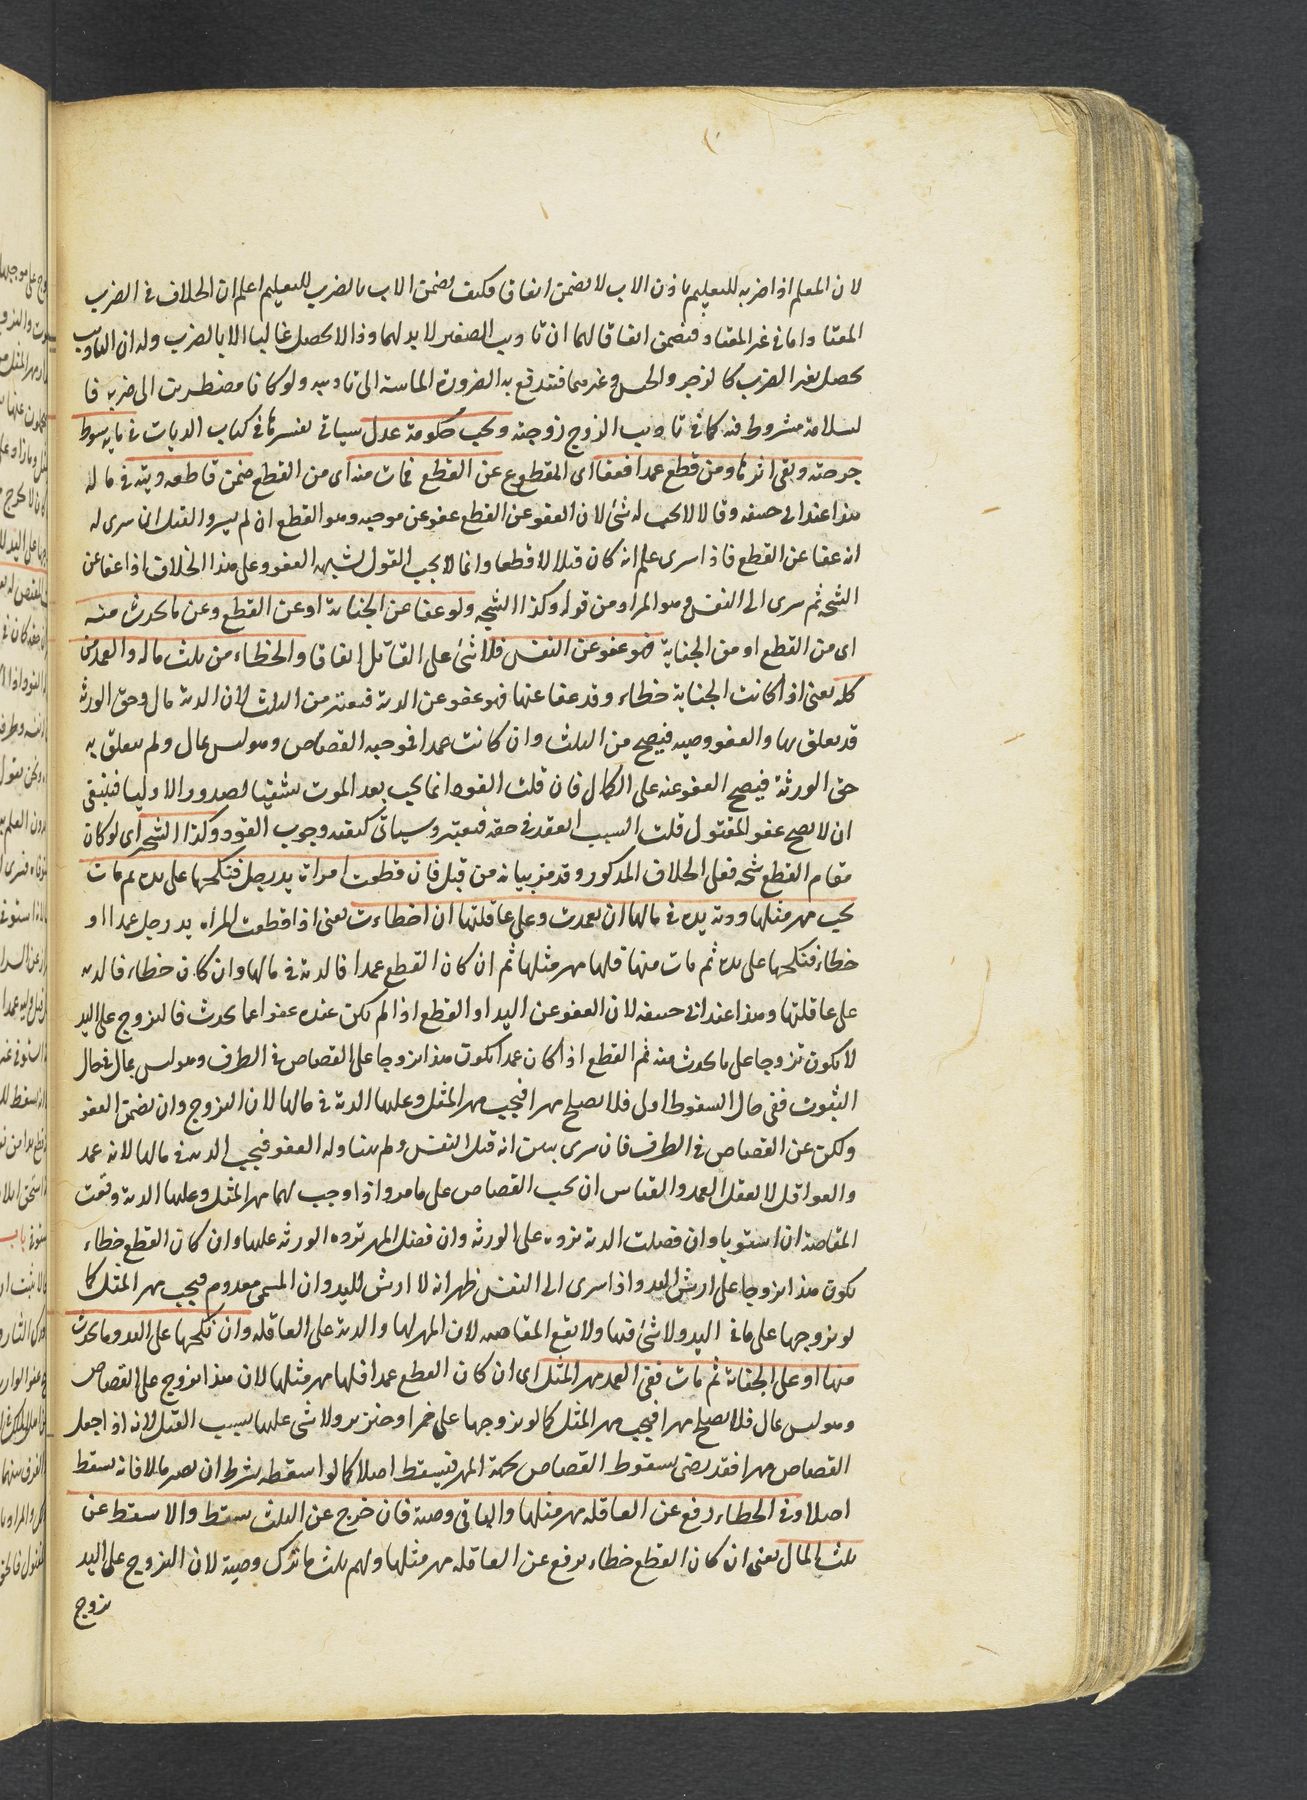 لان المعلم اذا ضربه للتعليم باذن الاب لا يضمن اتفاقا فكيف يضمن الاب بالضرب للتعليم اعلم ان الخلاف في الضرب
المعتاد واما في غير المعتاد فيضمن اتفاقا لهما ان تاديب الصغير لا بد لهما وذا لا يحصل غالبا الا بالضرب وله ان التاديب
يحصل بغير الضرب كالزجر والحبس وغيرهما فتندفع به الضرورة الماسة الى تاديبه ولو كانا مضطرين الى ضربه فا
لسلامة مشروط فيه كما في تاديب الزوج زوجته ويجب حكومة عدل سياتي تفسيرها في كتاب الديات في مايه سوط
جرحته وبقى اثرها ومن قطع عمدا فعفا اى المقطوع عن القطع فمات منه اى من القطع ضمن قاطعه ديته في ماله
هذا عند ابي حنيفه وقالا لا يجب له شئ لان العفو عن القطع عفو عن موجبه وهو القطع ان لم يسر والقتل ان سرى له
انه عفا عن القطع فاذا سرى علم انه كان قتلا لا قطعا وانما لا يجب القول لشبهه العفو وعلى هذا الخلاف اذا عفا عن
الشجه ثم سرى الى النفس وهو المراد من قوله وكذا الشجه ولو عفا عن الجناية او عن القطع وعن ما يحدث منه
اى من القطع او من الجناية فهو عفو عن النفس فلا شئ على القاتل اتفاقا والخطاء من ثلث ماله والعمد من
كله يعنى اذا كانت الجناية خطاء وقد عفا عنها فهو عفو عن الدية فيعتبر من الثلث لان الدية مال وحق الورثه
قد يعلق بها والعفو وصيه فيصح من الثلث وان كانت عمدا فموجبه القصاص وهو ليس بمال ولم يتعلق به
حق الورثة فيصح العفو عنه على الكمال فان قلت القود انما يجب بعد الموت تشفيا لصدور الاوليا فينبغى
ان لا يصح عفو المقتول قلت السبب انعقد في حقه فيعتبر وسياتي كيفيه وجوب القود وكذا الشجه اى لو كان
مقام القطع شجه فعلى الخلاف المذكور وقد مر بيانه من قبل فان قطعت امراة يد رجل فنكحها على يده ثم مات
يجب مهر مثلها ودية يده في مالها ان تعمدت وعلى عاقلتها ان اخطاءت يعنى اذا قطعت المراه يد رجل عمدا او
خطاء فنكحها على يده ثم مات منها فلها مهر مثلها ثم ان كان القطع عمدا فالدية في مالها وان كان خطاء فالديه
على عاقلتها وهذا عند ابي حنيفه لان العفو عن اليد او القطع اذا لم يكن عنده عفوا عما يحدث فالتزوج على اليد
لا يكون تزوجا على ما يحدث منه ثم القطع اذا كان عمدا يكون هذا تزوجا على القصاص في الطرف وهو ليس بمال في حال
الثبوت ففي حال السقوط اولى فلا يصلح مهرا فيجب مهر المثل وعليها الدية في مالها لان التزوج وان يضمن العفو
ولكن عن القصاص في الطرف فان سرى يتبين انه قتل النفس ولم يتناوله العفو فيجب الديه في مالها لانه عمد
والعواقل لا تعقل العمد والقياس ان يجب القصاص على ما مر واذا وجب لهما مهر المثل وعليها الدية وقعت
المقاصة ان استويا وان فضلت الدية تزوه على الورثه وان فضل المهر تزوه الورثه عليها وان كان القطع خطاء
يكون هذا تزوجا على ارش اليد واذا سرى الى النفس ظهر انه لا ارش لليد وان المسمى معدوم فيجب مهر المثل كما
لو تزوجها على ما في اليد ولا شئ فيها ولا يقع المقاصه لان المهر لها والدية على العاقله وان نكحها على اليد وما يحدث
منها او على الجناية ثم مات ففي العمد مهر المثل اى ان كان القطع عمدا فلها مهر مثلها لان هذا تزوج على القصاص
وهو ليس بمال فلا يصلح مهرا فيجب مهر المثل كما لو تزوجها على خمر او خنزير ولا شئ عليها بسبب القتل لانه اذا جعل
القصاص مهرا فقد رضى بسقوط القصاص بجهة المهر فيسقط اصلا كما لو اسقطه بشرط ان يصير مالا فانه يسقط
اصلا وفي الخطاء رفع عن العاقله مهر مثلها والباقى وصية فان خرج عن الثلث سقط والا سقط عن
ثلث المال يعنى ان كان القطع خطاء يرفع عن العاقله مهر مثلها ولهم ثلث ما ترك وصية لان التزوج على اليد
تزوج